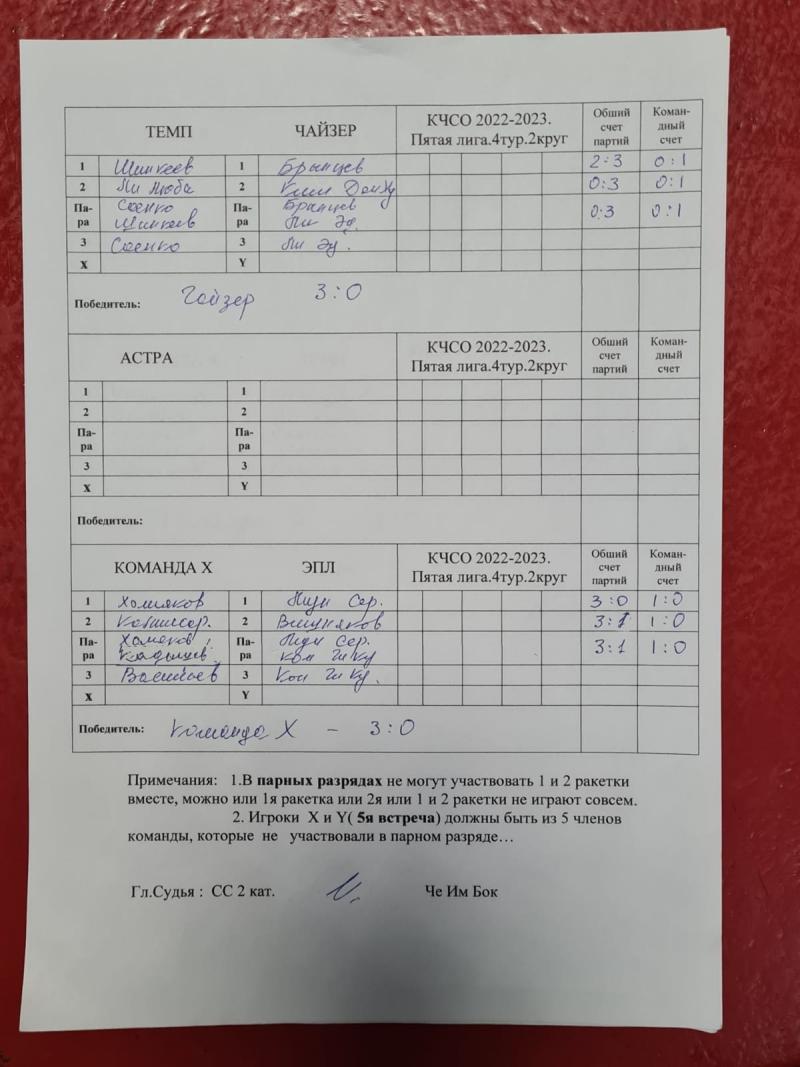 ТЕМП ЧАЙЗЕР КЧСО 2022-2023. Пятая лига.4тур.2круг Общий счет партий Коман-дный счет
1 Шинкеев 1 Брынцев 2:3 0:1
2 Ли Люба 2 Ким ДонХу 0:3 0:1
Па-ра Саенко Шинкеев Па-ра Брынцев Ли Эд. 0:3 0:1
3 Саенко 3 Ли Эд.
X Y
Победитель: Чайзер 3:0
АСТРА КЧСО 2022-2023. Пятая лига.4тур.2круг Общий счет партий Коман-дный счет
1 1
2 2
Па-ра Па-ра
3 3
X Y
Победитель:
КОМАНДА Х ЭПЛ КЧСО 2022-2023. Пятая лига.4тур.2круг Общий счет партий Коман-дный счет
1 Хомяков 1 Сер. 3:0 1:0
2 2 Вишняков 3:1 1:0
Па-ра Хомяков, Па-ра Сер. 3:1 1:0
3 3
X Y
Победитель: Команда Х - 3:0
Примечания: 1.В парных разрядах не могут участвовать 1 и 2 ракетки
вместе, можно или 1я ракетка или 2я или 1 и 2 ракетки не играют совсем.
2. Игроки Х и Y( 5я встреча) должны быть из 5 членов
команды, которые не участвовали в парном разряде…
Гл.Судья : СС 2 кат. Че Им Бок